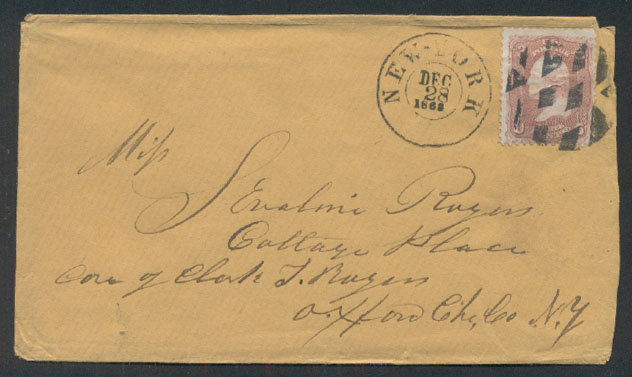 NEW-YORK
DEC
28
1863
Miss
S Evaline Rogers
Cottage Place
Care of Clark T. Rogers
Oxford Che, Co N.Y